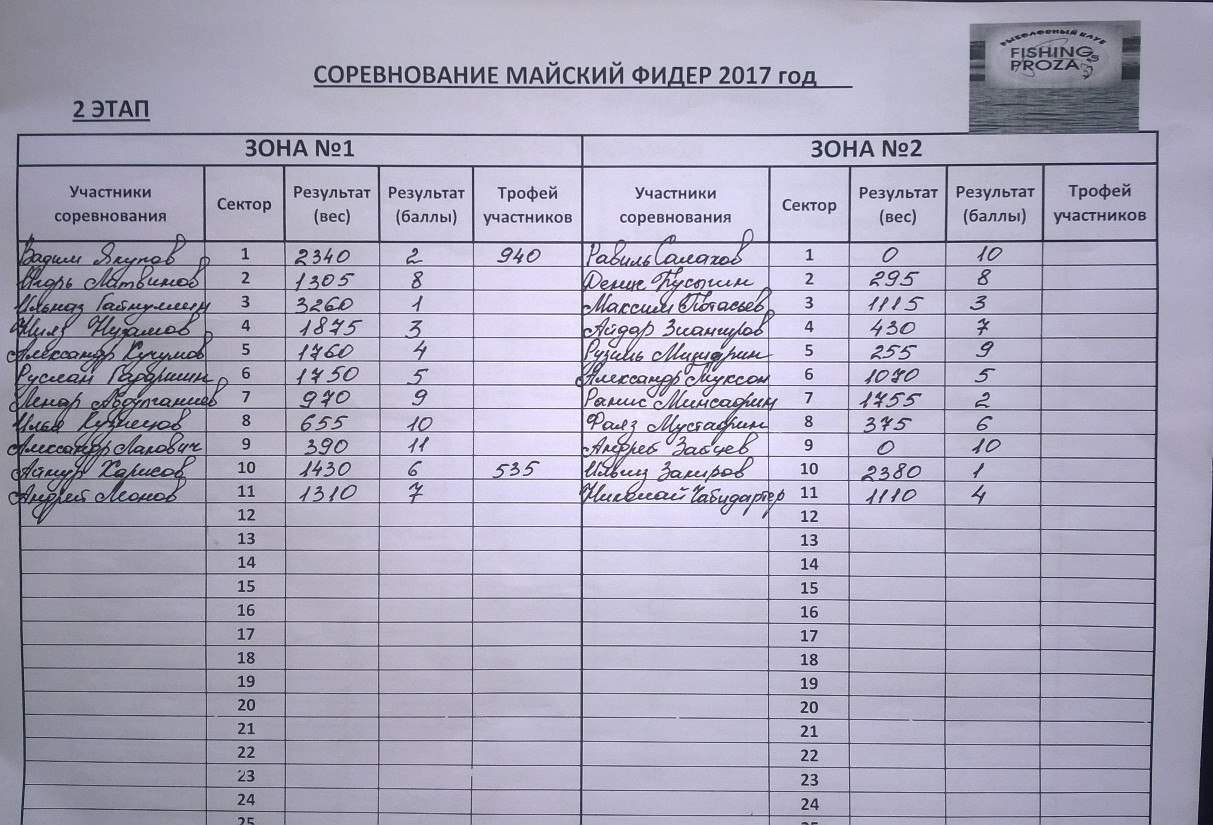 РЫБОЛОВНЫЙ КЛУБ
FISHING
PROZA
СОРЕВНОВАНИЕ МАЙСКИЙ ФИДЕР 2017 год
2 ЭТАП
ЗОНА №1 ЗОНА №2
Участники соревнования Сектор Результат (вес) Результат (баллы) Трофей участников Участники соревнования Сектор Результат (вес) Результат (баллы) Трофей участников
Вадим Якупов 1 2340 2 940 Равиль Салахов 1 0 10
Игорь Литвинов 2 1305 8 Денис 2 295 8
Ильназ 3 3260 1 Максим 3 1115 3
Нияз Низамов 4 1875 3 Айдар Зиангиров 4 430 7
Александр 5 1760 4 Рузиль 5 255 9
Руслан 6 1750 5 Александр Муксон 6 1070 5
Ленар 7 970 9 Ранис Минсафин 7 1755 2
Илья Кузнецов 8 655 10 Фаяз Мустафин 8 375 6
Александр 9 390 11 Андрей Зайцев 9 0 10
Айнур Харисов 10 1430 6 535 Ильшат Закиров 10 2380 1
Андрей Леонов 11 1310 7 Николай 11 1110 4
12 12
13 13
14 14
15 15
16 16
17 17
18 18
19 19
20 20
21 21
22 22
23 23
24 24
25 25